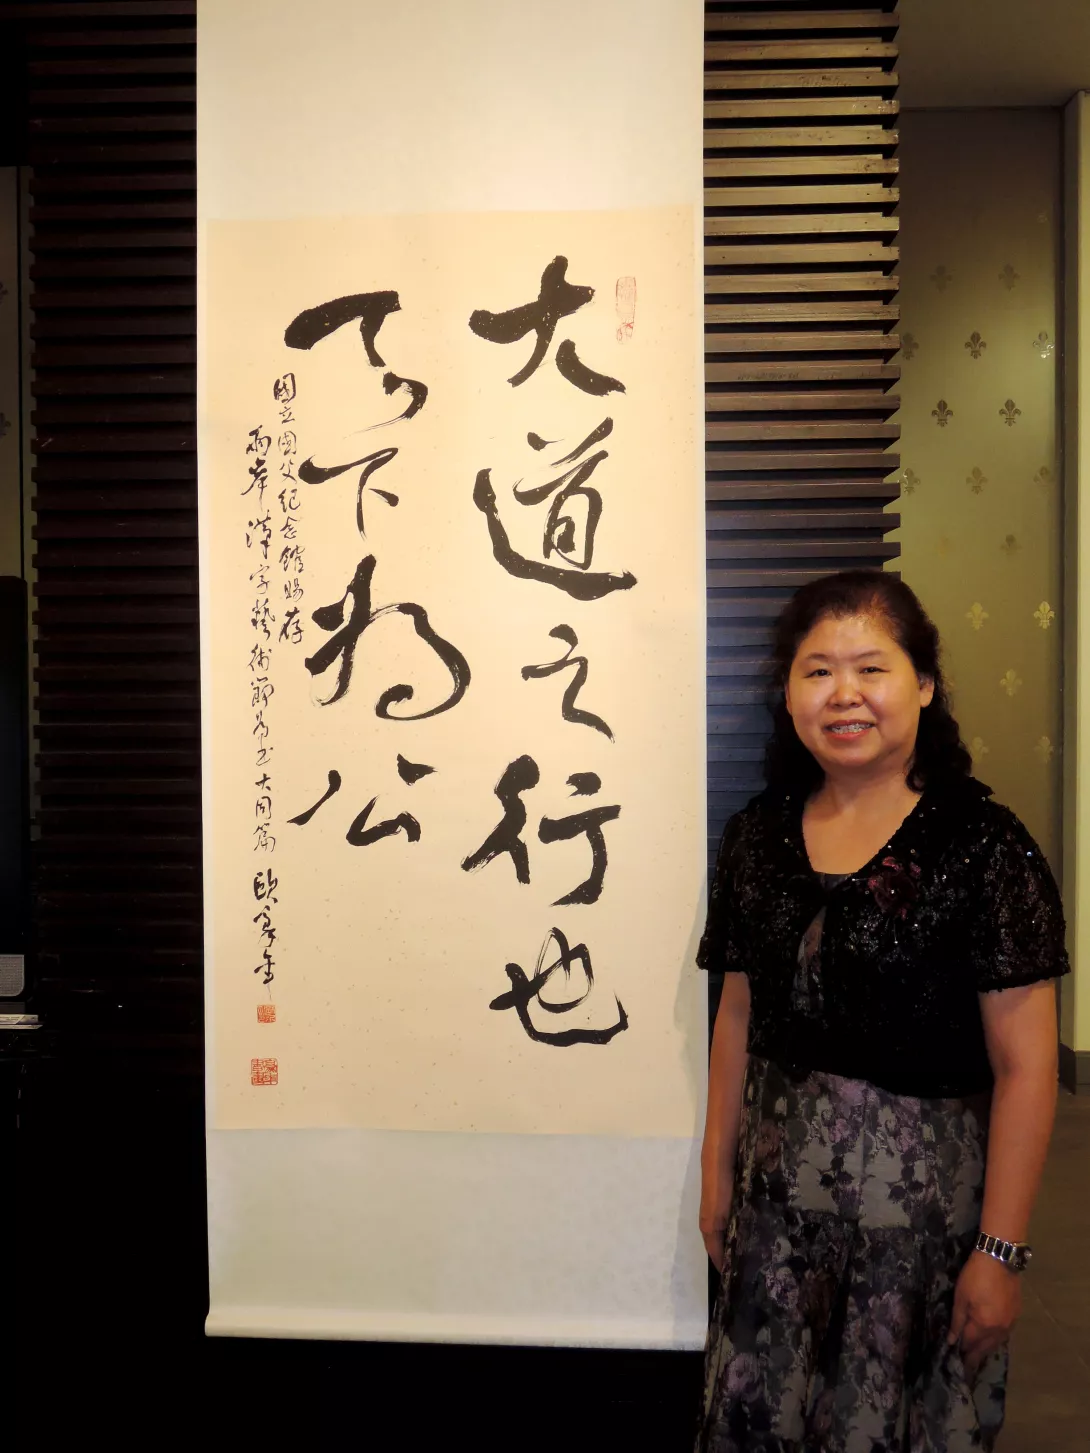 大道之行也
天下為公
國立國父紀念館賜存
兩岸漢字藝術節為書大同篇
歐豪年